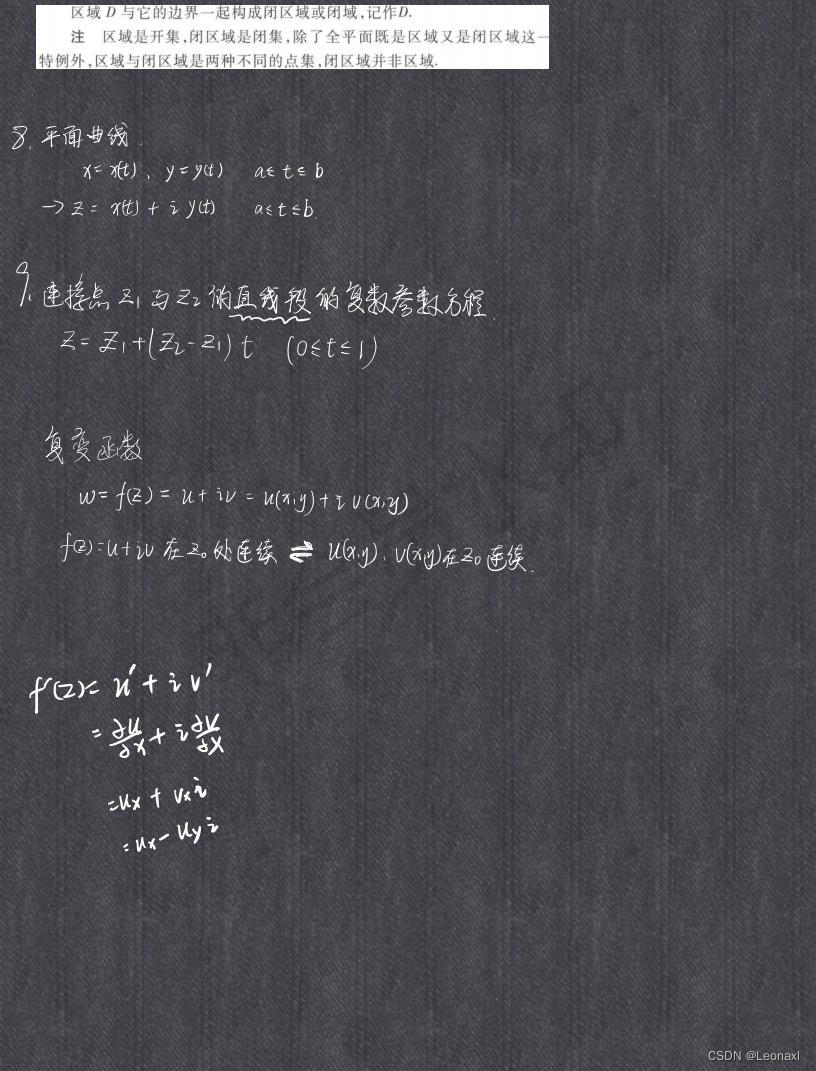 区域 D 与它的边界一起构成闭区域或闭域,记作D.
注 区域是开集,闭区域是闭集,除了全平面既是区域又是闭区域这一
特例外,区域与闭区域是两种不同的点集,闭区域并非区域.
8. 平面曲线.
x=x(t)、y=y(t) a≤t≤b
→z=x(t)+iy(t) a≤t≤b.
9. 连接点z₁与z₂的直线段的复数参数方程.
z=z₁+(z₂-z₁)t (0≤t≤1)
复变函数
w=f(z)=u+iv=u(x,y)+iv(x,y)
f(z)=u+iv在z₀处连续⇌u(x,y)、v(x,y)在z₀连续.
f'(z)=u'+iv'
=∂u/∂x+i∂v/∂x
=ux+vxi
=ux-uyi
CSDN @Leonaxl